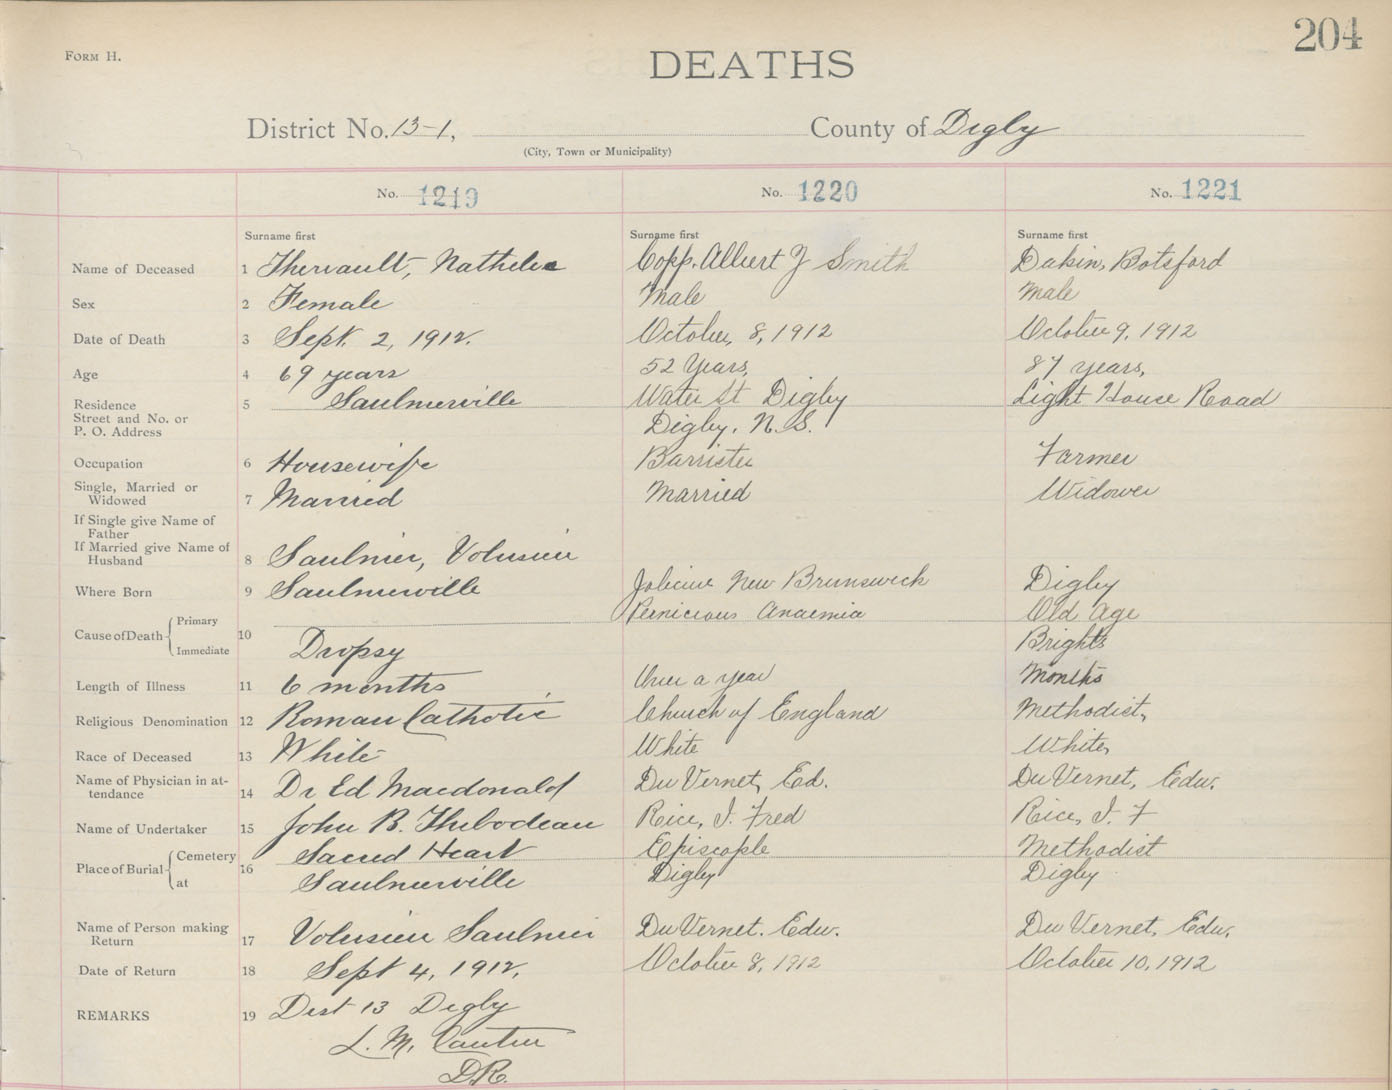 204
FORM H.
DEATHS
District No. 13-1, County of Digby
(City, Town or Municipality)
No. 1219 No. 1220 No. 1221
Surname first Surname first Surname first
Name of Deceased 1 Theriault, Copp, Albert J Smith Dakin, Botsford
Sex 2 Female Male Male
Date of Death 3 Sept. 2, 1912. October, 8, 1912 October 9, 1912
Age 4 69 years 52 Years, 87 years,
Residence 5 Saulnierville Water St Digby Light House Road
Street and No. or
P. O. Address Digby, N.S.
Occupation 6 Housewife Barrister Farmer
Single, Married or
Widowed 7 Married Married Widower
If Single give Name of
Father
If Married give Name of
Husband 8 Saulnier, Volusien
Where Born 9 Saulnierville Jolicure New Brunswick Digby
Cause of Death Primary 10 Pernicious Anaemia Old Age
Immediate Dropsy Brights
Length of Illness 11 6 months Over a year Months
Religious Denomination 12 Roman Catholic Church of England Methodist,
Race of Deceased 13 White White White,
Name of Physician in at-
tendance 14 Dr Ed Macdonald Du Vernet, Ed. Du Vernet, Edw.
Name of Undertaker 15 John B. Thibodeau Rice, J. Fred Rice, J. F
Place of Burial Cemetery 16 Sacred Heart Episcople Methodist
at Saulnierville Digby Digby
Name of Person making
Return 17 Volusien Saulnier Du Vernet. Edw. Du Vernet, Edw.
Date of Return 18 Sept 4, 1912, October 8, 1912 October 10, 1912
REMARKS 19 Dist 13 Digby
L. M.
D.R.